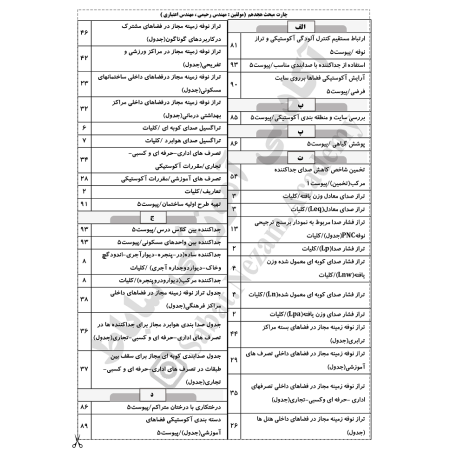 چارت مبحث هجدهم (مولفین : مهندس رحیمی ، مهندس اعتباری )
الف
ارتباط مستقیم کنترل آلودگی آکوستیکی و تراز
نوفه /پیوست۵
۸۱
استفاده از جداکننده با صدابندی مناسب/پیوست۵
۹۳
آرایش آکوستیکی فضاها برروی سایت
فرضی/پیوست۵
۹۰
ب
بررسی سایت و منطقه بندی آکوستیکی/پیوست۵
۸۵
پ
پوشش گیاهی /پیوست۵
۸۶
ت
تخمین شاخص کاهش صدای جداکننده
مرکب(تخمین)/پیوست۱
۵۴
تراز صدای معادل وزن یافته/کلیات
۳
تراز صدای معادل(Leq)/کلیات
۳
تراز فشار صدا مربوط به نمودار برسنج ترجیحی
نوفهPNC(جدول)/کلیات
۱۳
تراز فشار صدا(Lp)/کلیات
۲
تراز فشار صدای کوبه ای معمول شده وزن
یافته(Lnw)/کلیات
۴
تراز فشار صدای کوبه ای معمول شده(Ln)/کلیات
۴
تراز فشار صدای وزن یافته(Lpa)/کلیات
۲
تراز نوفه زمینه مجاز در فضاهای بسته مراکز
ترابری(جدول)
۴۴
تراز نوفه زمینه مجاز در فضاهای داخلی تصرف های
آموزشی(جدول)
۲۹
تراز نوفه زمینه مجاز در فضاهای داخلی تصرفهای
اداری -حرفه ای وکسبی-تجاری(جدول)
۳۵
تراز نوفه زمینه مجاز در فضاهای داخلی هتل ها
(جدول)
۲۶
تراز نوفه زمینه مجاز در فضاهای مشترک
درکاربردهای گوناگون(جدول)
۴۶
تراز نوفه زمینه مجاز در مراکز ورزشی و
تفریحی(جدول)
۴۲
تراز نوفه زمینه مجاز درفضاهای داخلی ساختمانهای
مسکونی(جدول)
۲۳
تراز نوفه زمینه مجاز درفضاهای داخلی مراکز
بهداشتی درمانی(جدول)
۳۲
تراگسیل صدای کوبه ای /کلیات
۶
تراگسیل صدای هوابرد /کلیات
۷
تصرف های اداری-حرفه ای و کسبی-
تجاری/مقررات آکوستیکی
۳۴
تصرف های آموزشی/مقررات آکوستیکی
۲۸
تعاریف/کلیات
۲
تهیه طرح اولیه ساختمان/پیوست۵
۹۱
ج
جداکننده بین کلاس درس/پیوست۵
۹۳
جداکننده بین واحدهای مسکونی/پیوست۵
۹۳
جداکننده ساده(در-پنجره-دیوارآجری-اندودگچ
وخاک-دیواردوجداره آجری) /کلیات
۸
جداکننده مرکب(دیوارودروپنجره)/کلیات
۸
جدول تراز نوفه زمینه مجاز در فضاهای داخلی
مراکز فرهنگی(جدول)
۳۸
جدول صدا بندی هوابرد مجاز برای جداکننده ها در
تصرف های اداری-حرفه ای و کسبی-تجاری(جدول)
۳۶
جدول صدابندی کوبه ای مجاز برای سقف بین
طبقات در تصرف های اداری-حرفه ای و کسبی-
تجاری(جدول)
۳۷
د
درختکاری با درختان متراکم/پیوست۵
۸۶
دسته بندی آکوستیکی فضاهای
آموزشی(جدول)/پیوست۵
۸۹